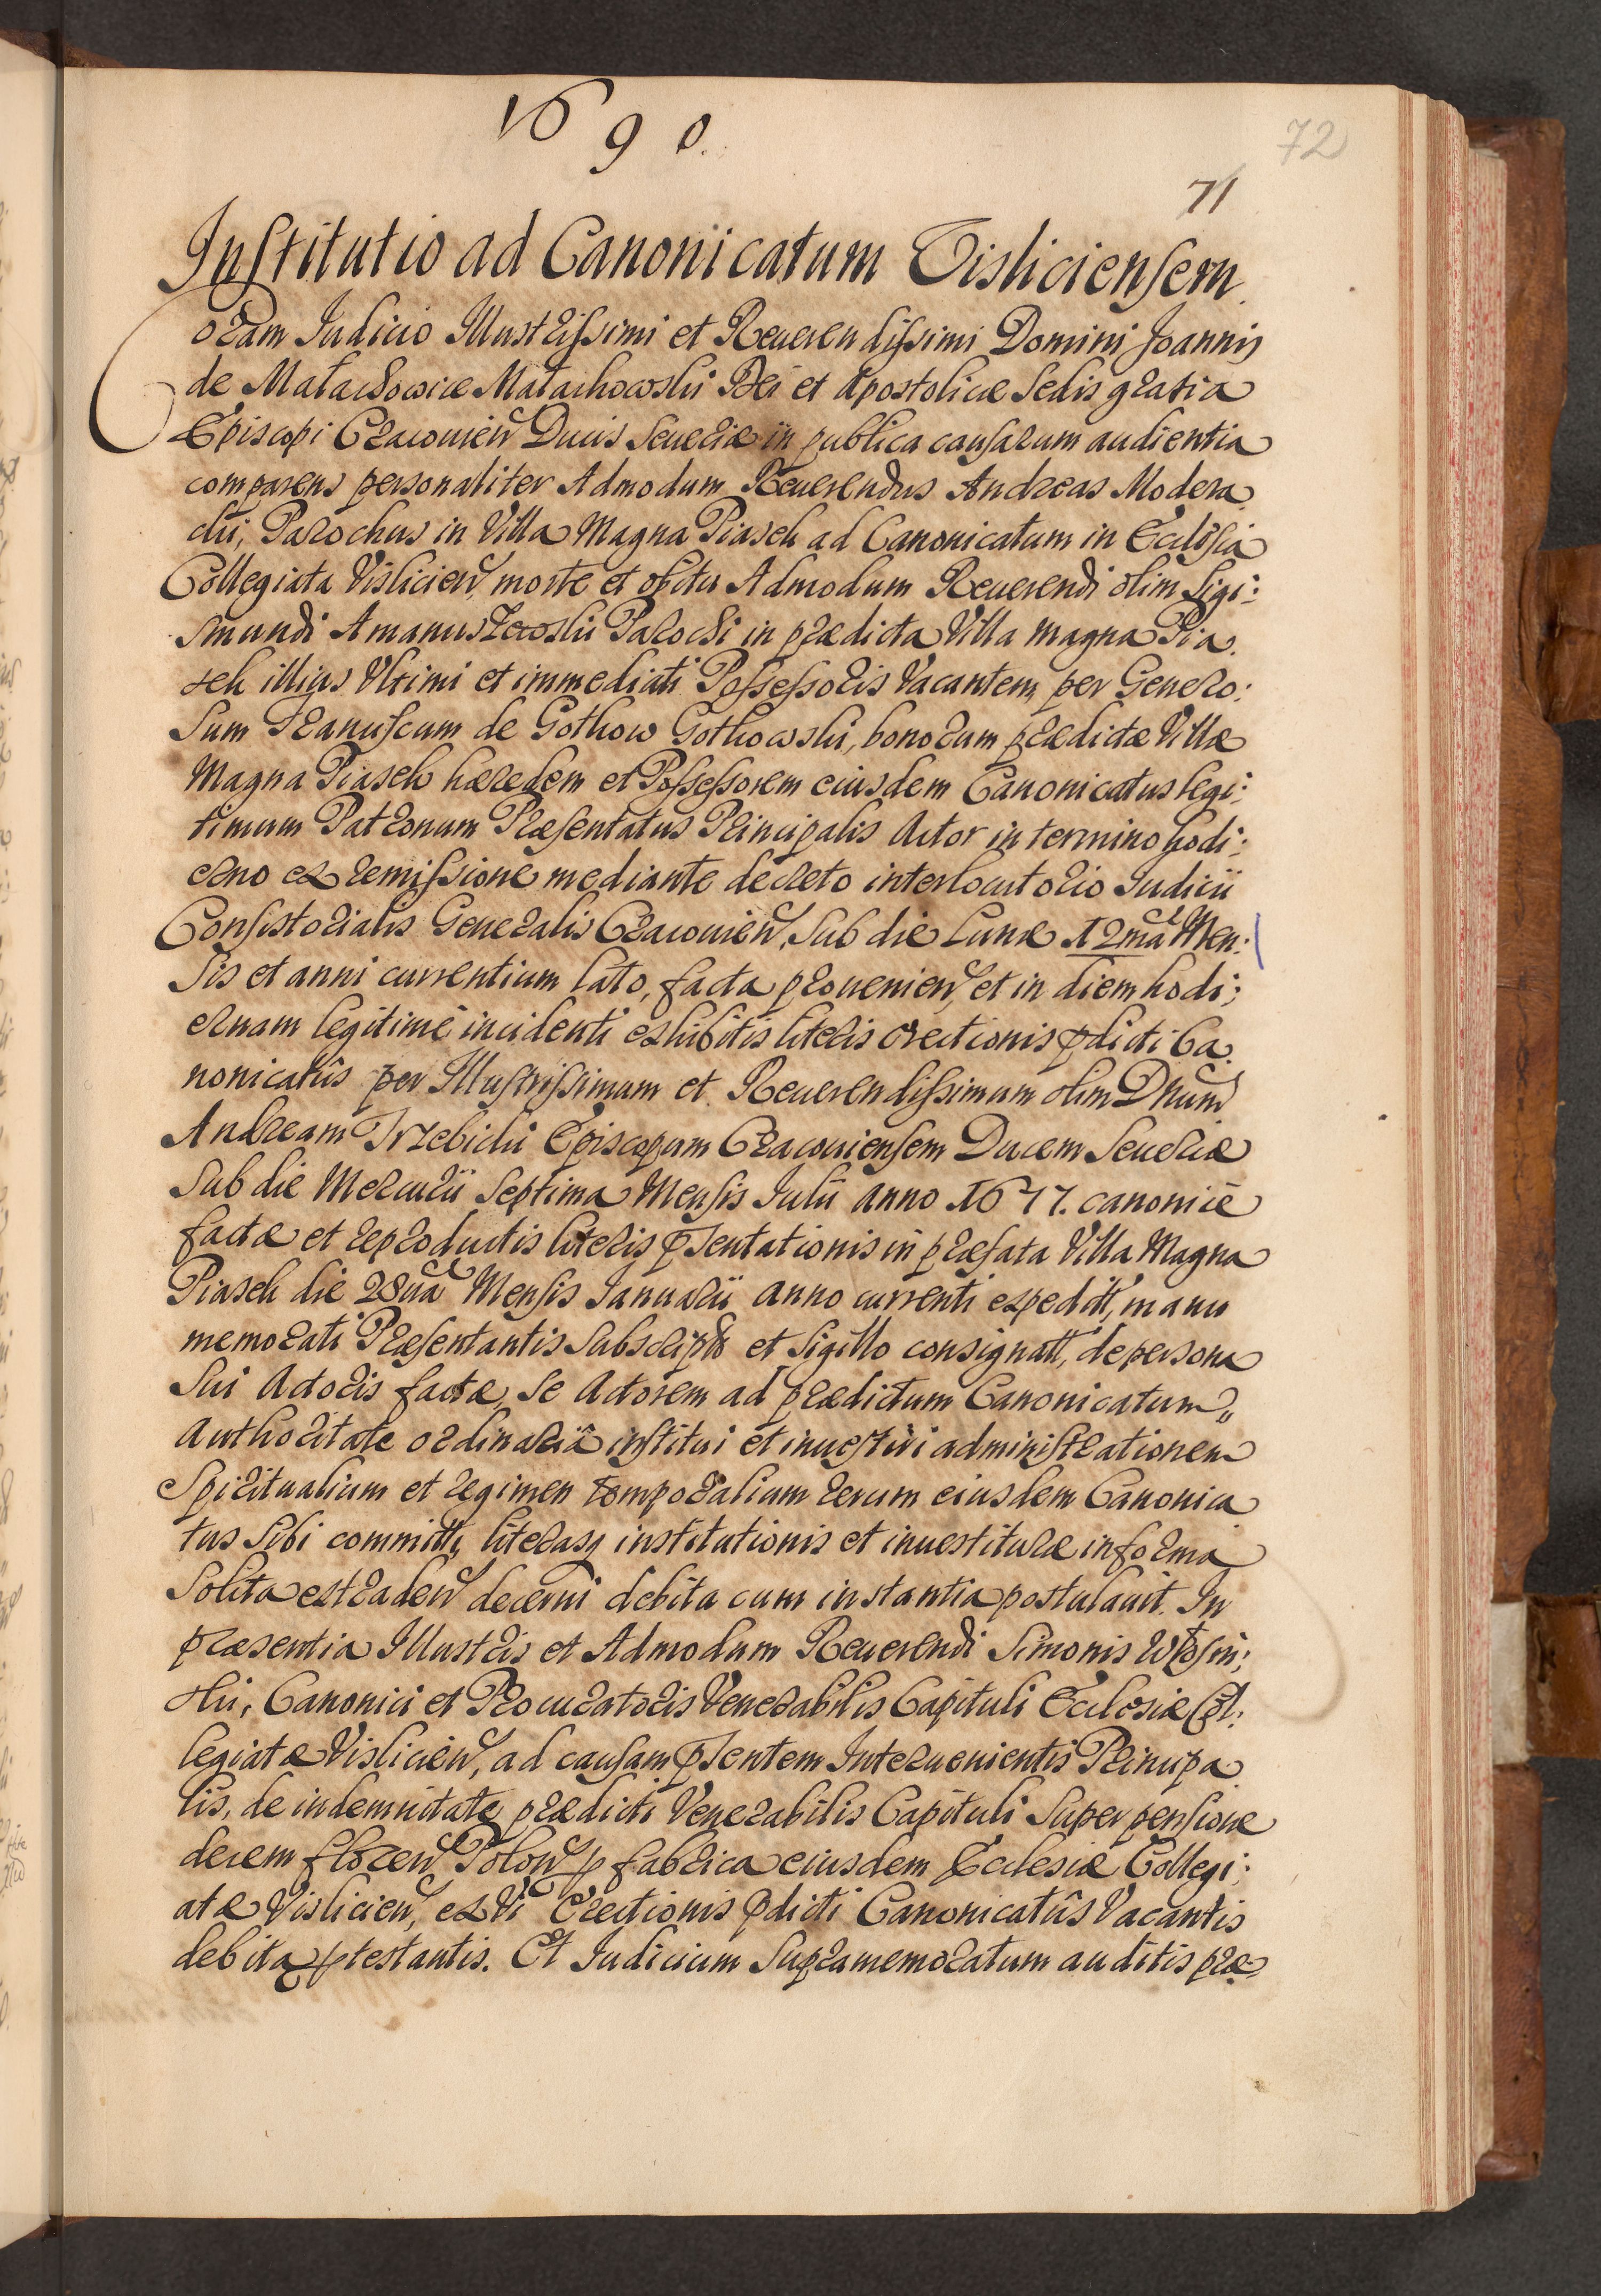 1690.
72
71
Institutio ad Canonicatum Visliciensem.
Coram Iudicio Illustrissimi et Reuerendissimi Domini Joannis
de Małachowice Małachowski Dei et Apostolicæ Sedis gratia
Episcopi Cracouien Ducis Seueriæ in publica causarum audientia
comparens personaliter Admodum Reuerendus Andreas Modera
cki, Parochus in Villa Magna Piasek ad Canonicatum in Ecclesia
Collegiata Vislicien, morte et obitu Admodum Reuerendi olim Sigi:
smundi Parochi in prædicta Villa magna Pia.
sek illius Vltimi et immediati Possessoris Vacantem, per Genero:
sum Franciscum de Gothow Gothowski, bonorum prædictæ Villæ
Magna Piasek hæredem et Possessorem eiusdem Canonicatus legi:
timum Patronum Præsentatus Principalis Actor in termino hodi:
erno ex remissione mediante decreto interlocutorio Iudicii
Consistorialis Generalis Cracouien, Sub die Lunæ 12ma Men:
sis et anni currentium lato, facta prouenien, et in diem hodi:
ernam legitime incidenti exhibitis literis erectionis pdicti Ca.
nonicatûs per Illustrissimum et Reuerendissimum olim Dnum
Andream Trzebicki Episcopum Cracouiensem Ducem Seueriæ
Sub die Mercurii Septima Mensis Iulii anno 1677. canonicè
factæ et reproductis literis pſentationis in præfata Villa Magna
Piasek die 28ua Mensis Ianuarii anno currenti expeditt, manu
memorati Præsentantis Subscriptis et Sigillo consignatt, de persona
sui Actoris factæ, Se Actorem ad prædictum Canonicatum
Authoritate ordinariâ institui et inuestiri administrationem
Spiritualium et regimen temporalium rerum eiusdem Canonica
tus Sibi committi, literasq institutionis et inuestituræ in forma
Solita extraden decerni debita cum instantia postulauit. In
præsentia Illustris et Admodum Reuerendi Simonis Włosin:
ski, Canonici et Procuratoris Venerabilis Capituli Ecclesiæ Col:
legiatæ Vislicien, ad causam pſentem Interuenientis Principa
lis, de indemnitate prædicti Venerabilis Capituli Super pensione
decem floren Polon p fabrica eiusdem Ecclesiæ Collegi:
atæ Vislicien, ex Vi Erectionis pdicti Canonicatûs Vacantis
debita ptestantis. Et Iudicium Supramemoratum auditis præ